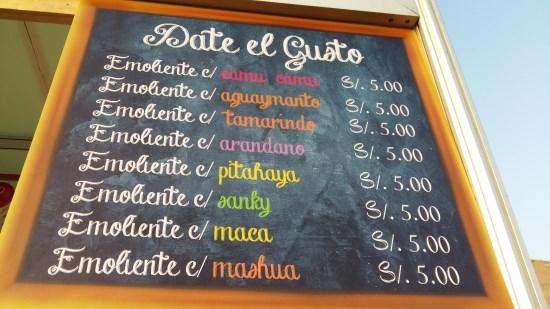 Date el Gusto
Emoliente c/ camu camu S/. 5.00
Emoliente c/ aguaymanto S/. 5.00
Emoliente c/ tamarindo S/. 5.00
Emoliente c/ arandano S/. 5.00
Emoliente c/ pitahaya S/. 5.00
Emoliente c/ sanky S/. 5.00
Emoliente c/ maca S/. 5.00
Emoliente c/ mashua S/. 5.00